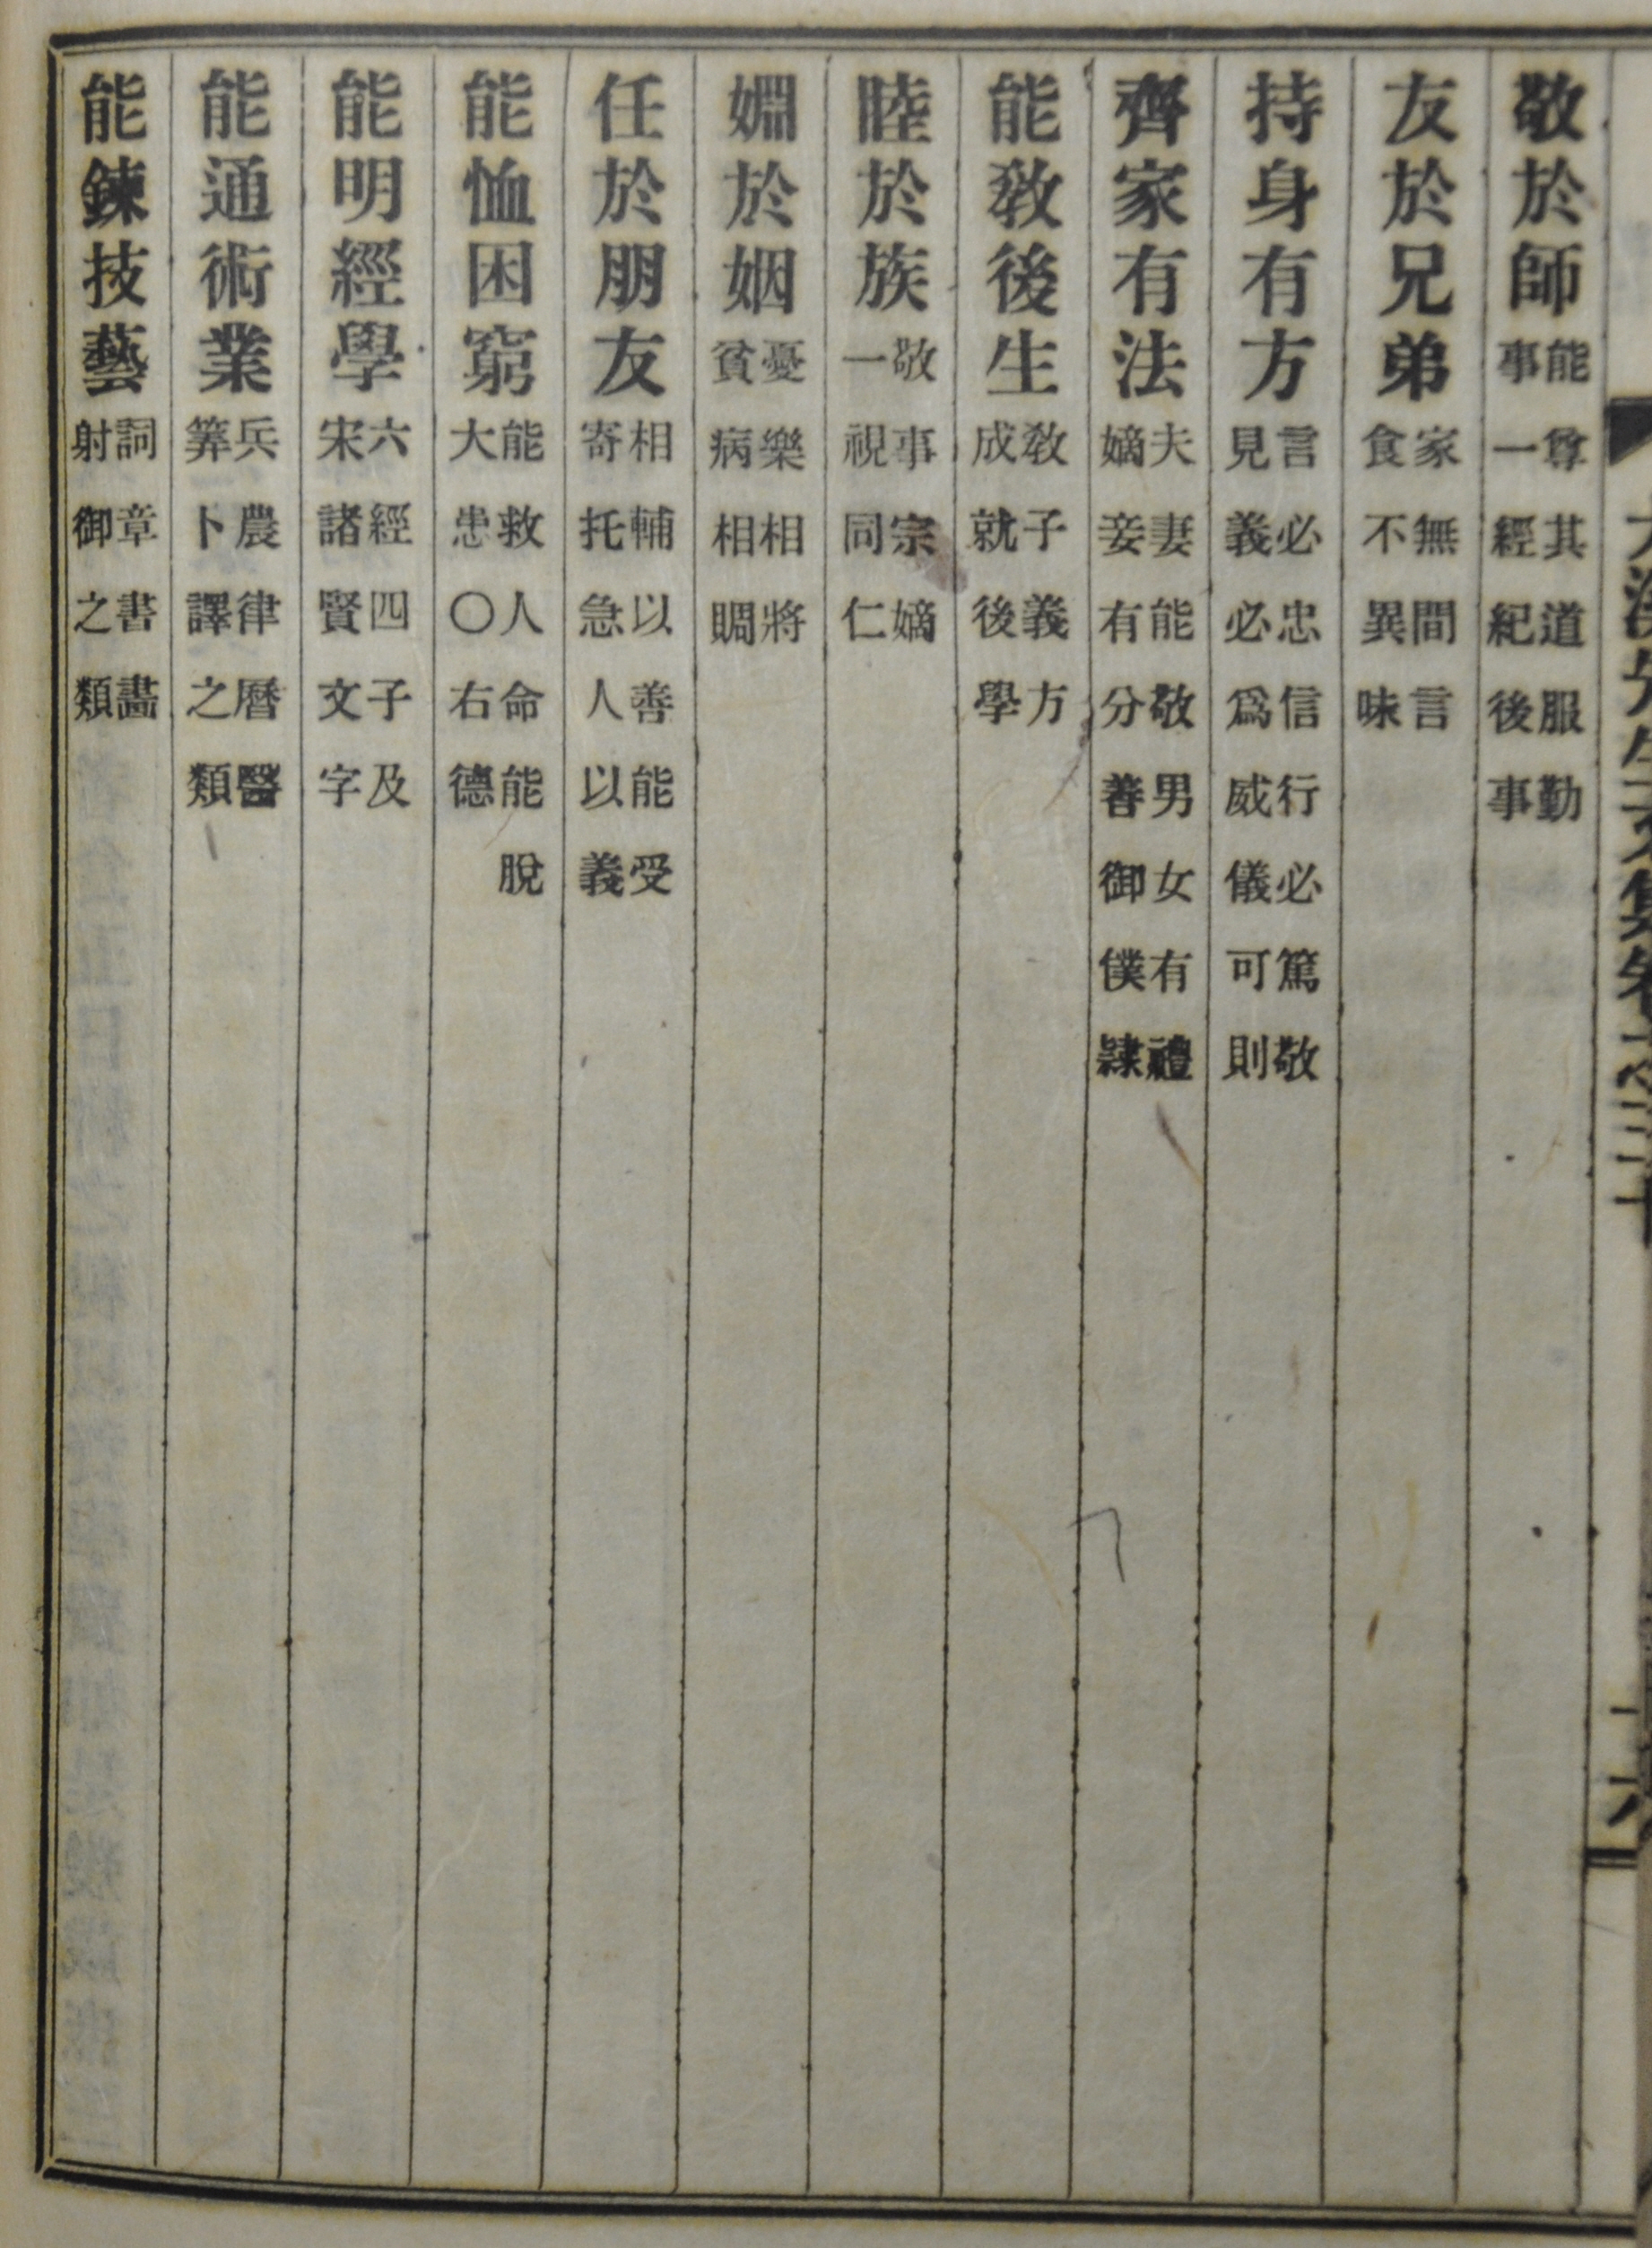 敬於師能尊其道服勤事一經紀後事
友於兄弟家無間言食不異味
持身有方言必忠信行必篤敬見義必爲威儀可則
齊家有法夫妻能敬男女有禮嫡妾有分善御僕隸
能敎後生敎子義方成就後學
睦於族敬事宗嫡一視同仁
婣於姻憂樂相將貧病相賙
任於朋友相輔以善能受寄托急人以義
能恤困窮能救人命能脫大患〇右德
能明經學六經四子及宋諸賢文字
能通術業兵農律曆醫筭卜譯之類
能鍊技藝詞章書畵射御之類